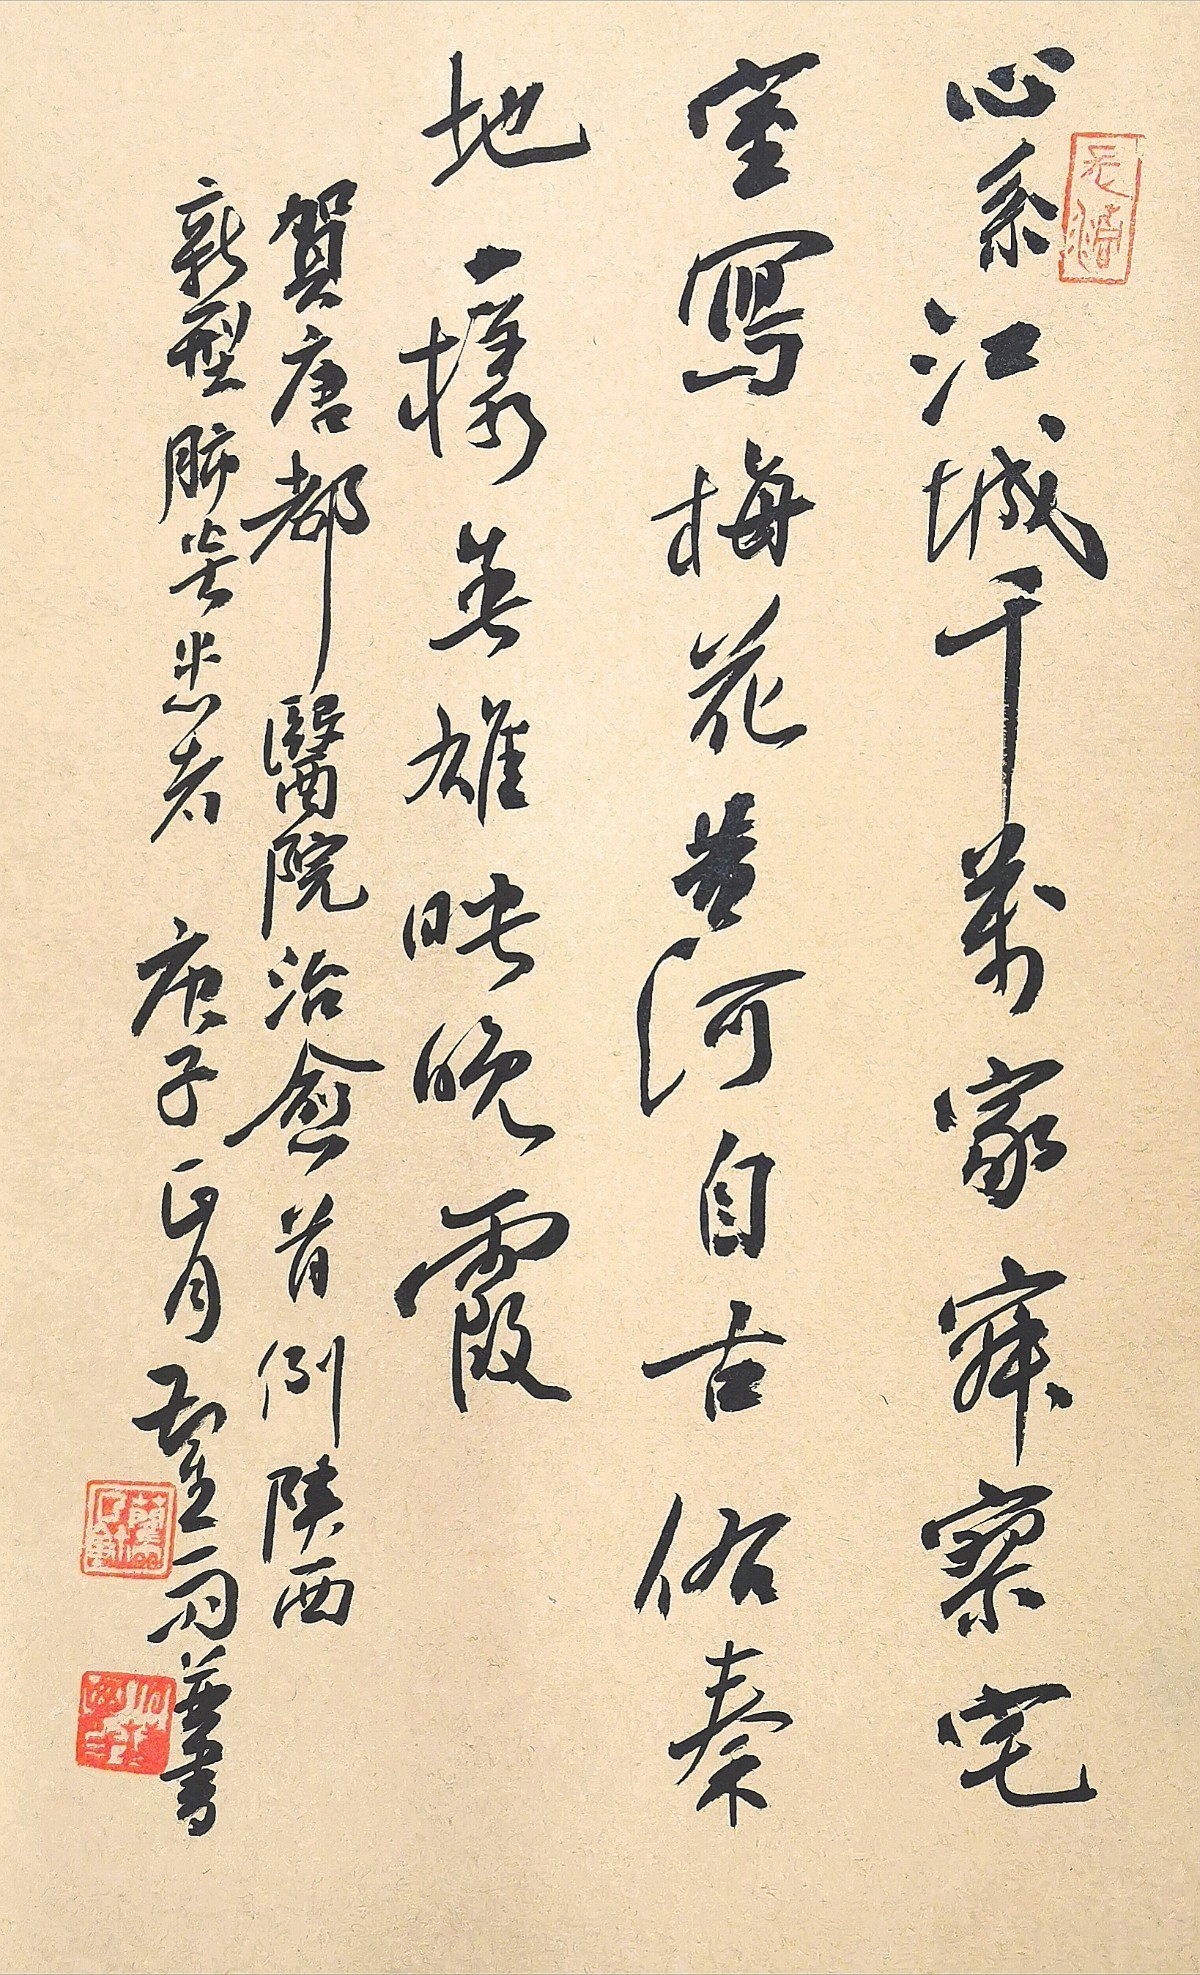 心系江城千萬家寂寥宅
室寫梅花黄河自古佑秦
地一樣英雄映晚霞
賀唐都醫院治愈首例陝西
新型肺炎患者 庚子正月 雨並書